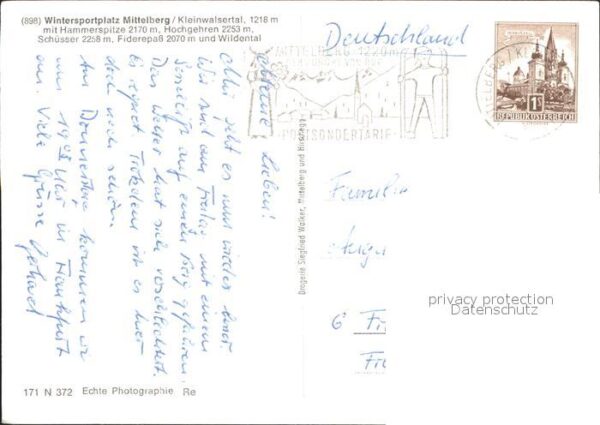 (898) Wintersportplatz Mittelberg / Kleinwalsertal, 1218 m
mit Hammerspitze 2170 m, Hochgehren 2253 m,
Schüsser 2258 m, Fiderepaß 2070 m und Wildental
Meine Lieben!
Mir geht es nun wieder
Wir sind am Freitag mit einem
Sessellift auf einen Berg gefahren.
Das Wetter hat sich verschlechtert.
Es regnet. Trotzdem ist es hier
doch noch schön.
Am Donnerstag kommen wir
um 19 Uhr in Frankfurt
an. Viele Grüsse Gerhard
171 N 372 Echte Photographie Re
Drogerie Siegfried Walker, Mittelberg und Hirschegg
Deutschland
MITTELBERG 1220m
POSTSONDERTARIF
1S
REPUBLIK ÖSTERREICH
Familie
6 F
privacy protection
Datenschutz